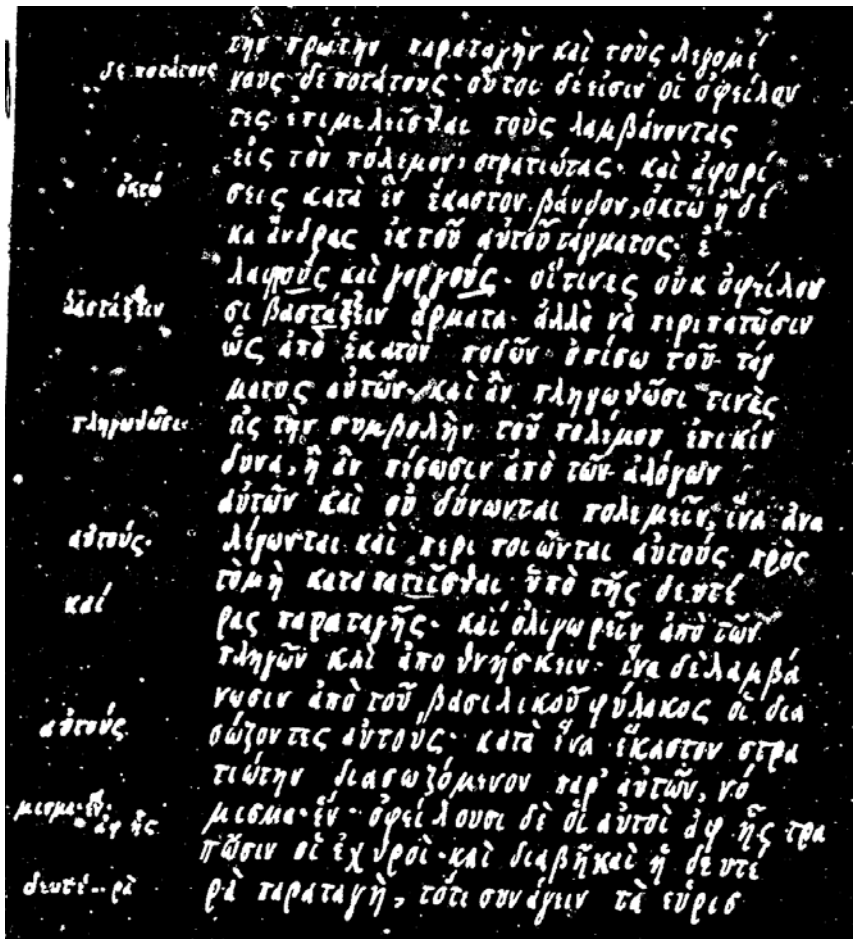 τὴν πρώτην παραταγὴν καὶ τοὺς λεγομέ
δεποτάτους
νους δεποτάτους· οὗτοι δέ εἰσιν οἱ ὀφείλον
τες ἐπιμελεῖσθαι τοὺς λαμβάνοντας
εἰς τὸν πόλεμον, στρατιώτας· καὶ ἀφορί
ὀκτώ
σεις κατὰ ἓν ἕκαστον βάνδον, ὀκτὼ ἢ δέ
κα ἄνδρας ἐκ τοῦ αὐτοῦ τάγματος· ἐ
λαφροὺς καὶ γοργούς· οἵτινες οὐκ ὀφείλου
βαστάξειν
σι βαστάξειν ἄρματα· ἀλλὰ νὰ περιπατῶσιν
ὡς ἀπὸ ἑκατὸν ποδῶν ὀπίσω τοῦ τάγ
ματος αὐτῶν· καὶ ἂν πληγωθῶσι τινὲς
πληγωθῶσι
εἰς τὴν συμβολὴν τοῦ πολέμου ἐπικίν
δυνα, ἢ ἂν πέσωσιν ἀπὸ τῶν ἀλόγων
αὐτῶν καὶ οὐ δύνωνται πολεμεῖν, ἵνα ἀνα
αὐτούς·
λέγωνται καὶ περιποιῶνται αὐτούς πρὸς
τὸ μὴ καταπατεῖσθαι ὑπὸ τῆς δευτέ
καί
ρας παραταγῆς· καί ὀλιγωρεῖν ἀπὸ τῶν
πληγῶν καὶ ἀποθνήσκειν· ἵνα δὲ λαμβά
νωσιν ἀπὸ τοῦ βασιλικοῦ φύλακος οἱ δια
αὐτούς
σώζοντες αὐτούς· κατὰ ἕνα ἕκαστον στρα
τιώτην διασωζόμενον παρ' αὐτῶν, νό
μισμα· ἕν· ἀφ ἧς
μισμα· ἕν· ὀφείλουσι δὲ οἱ αὐτοὶ ἀφ ἧς τρα
πῶσιν οἱ ἐχθροὶ· καὶ διαβῆ καὶ ἡ δευτέ
δευτέ--ρὰ
ρὰ παραταγὴ, τότε συνάγειν τὰ εὑρισ